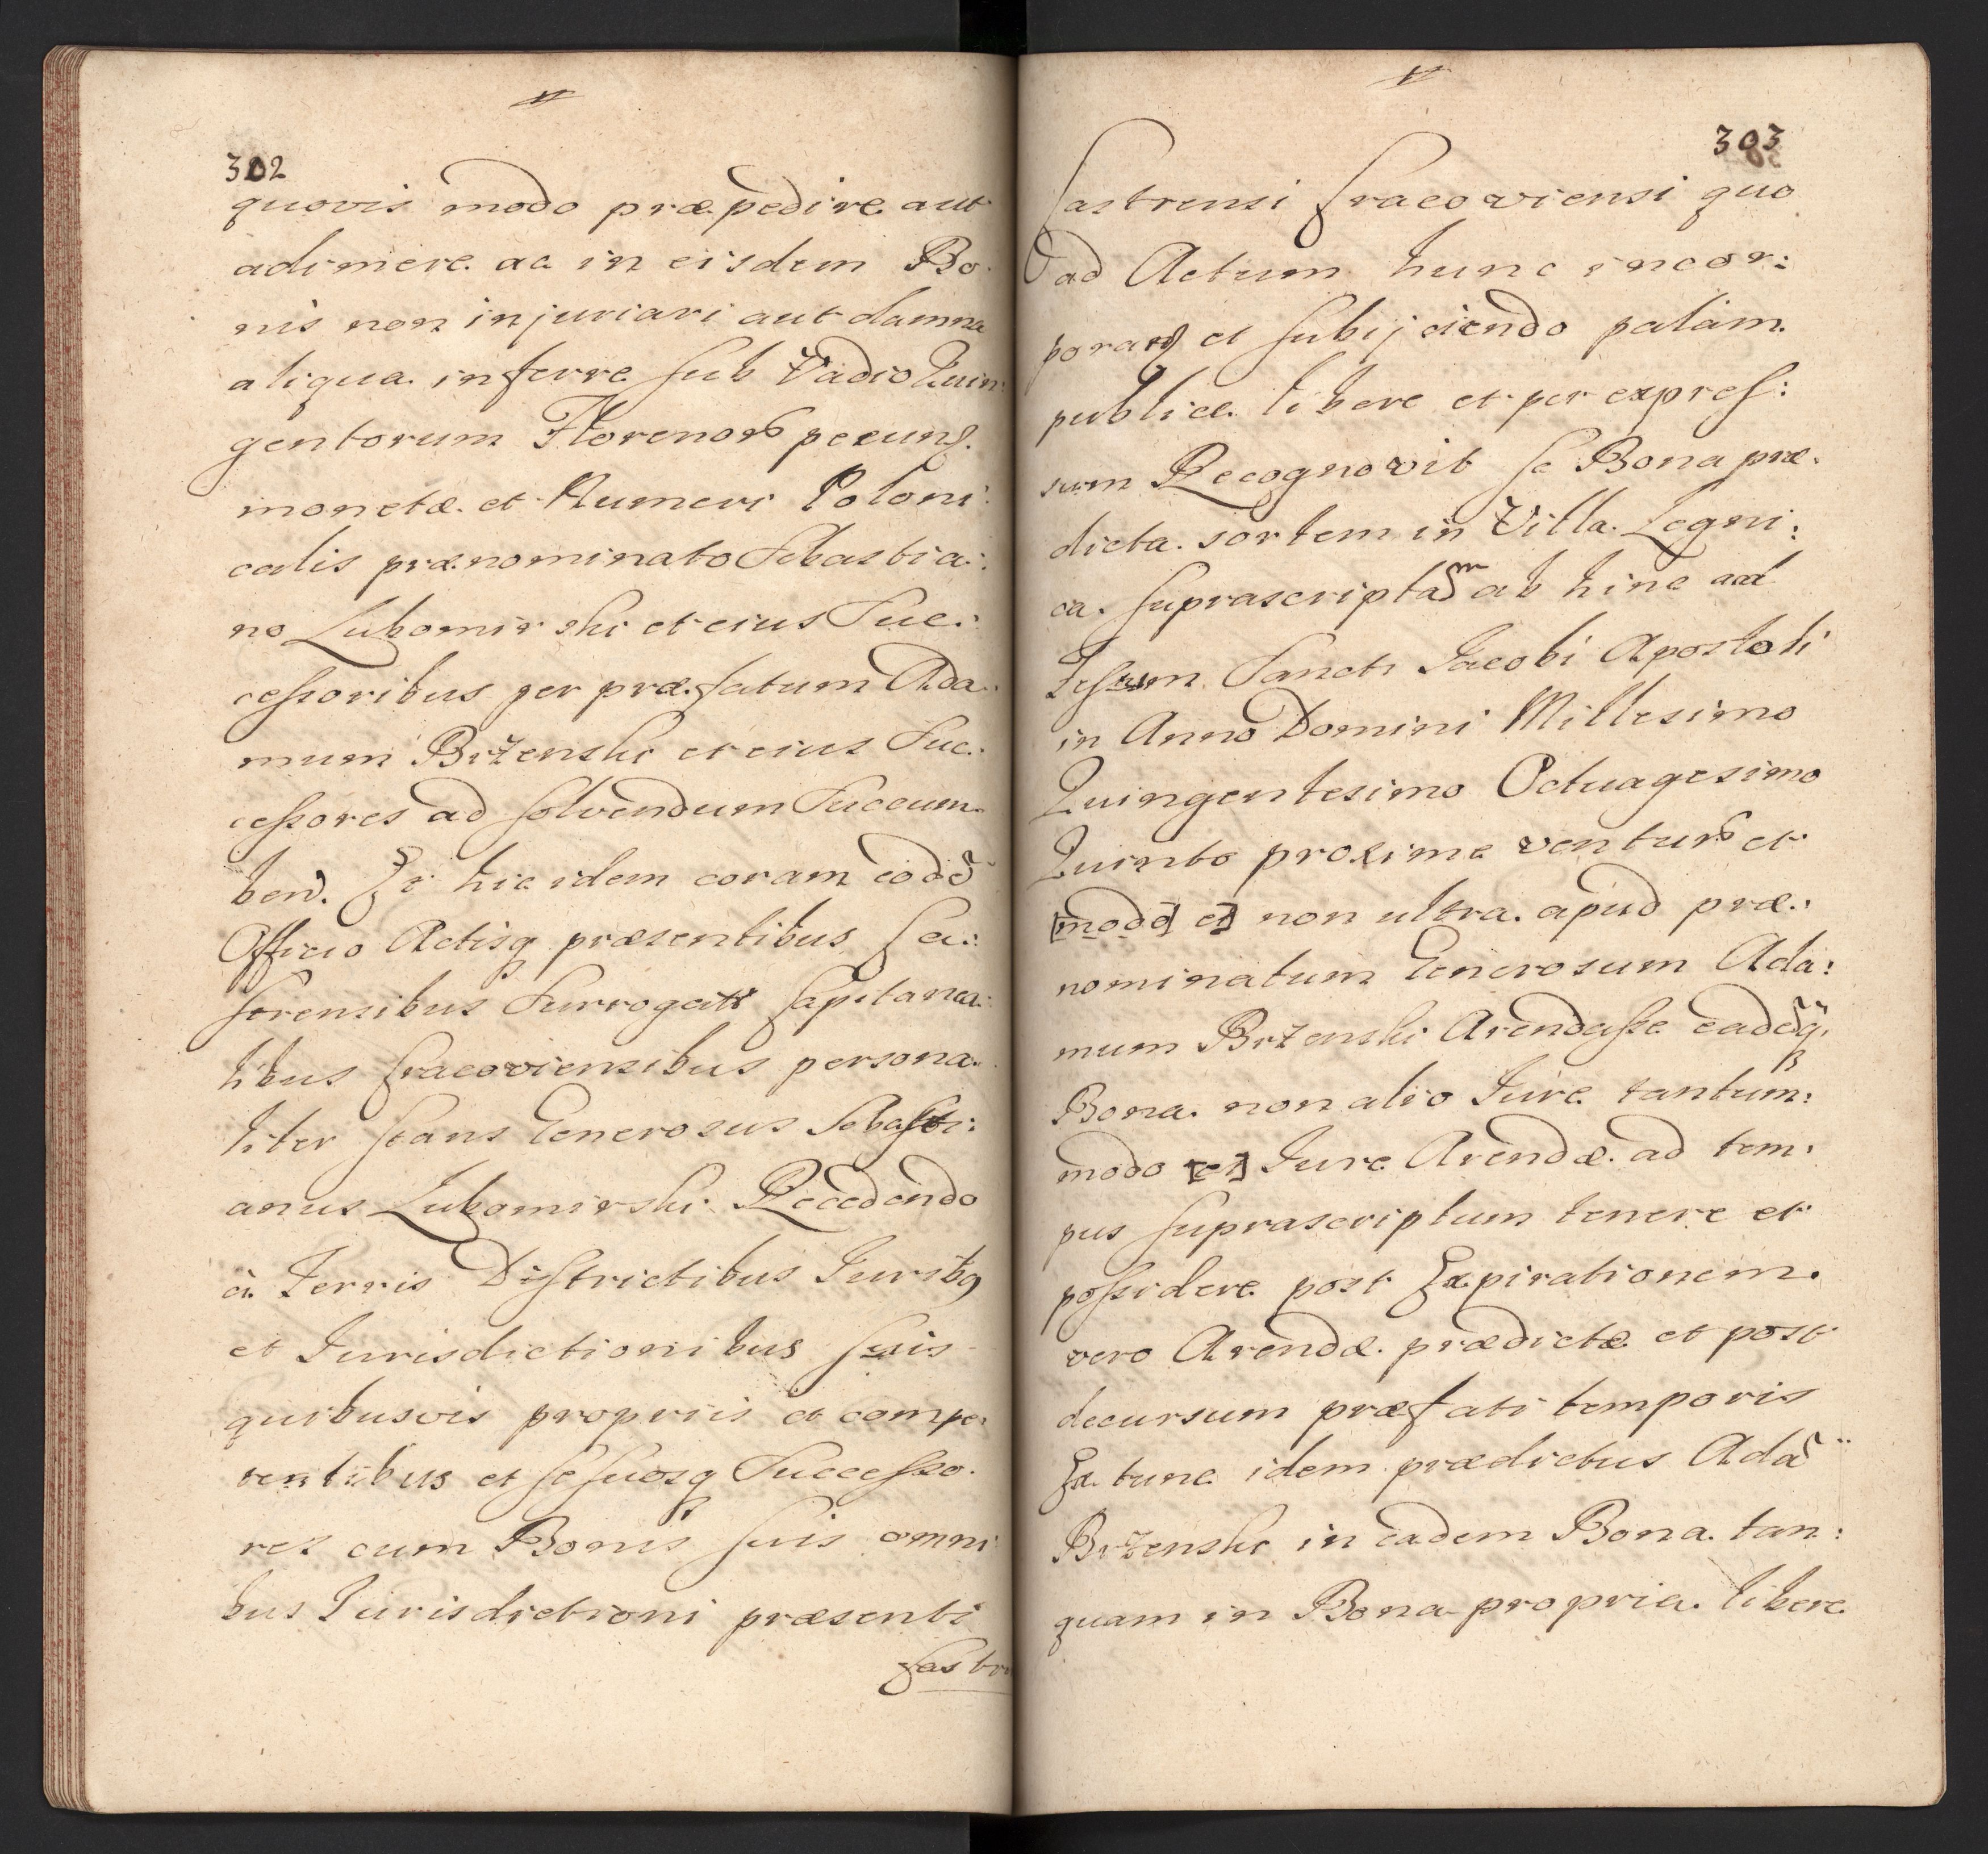 302
quovis modo præpedire aut
adimere ac in eisdem Bo
nis non injuriari aut damna
aliqua inferre sub Vadio Quin
gentorum Florenor pecun
monetæ et Numeri Poloni
calis prænominato Sebastia:
no Lubomirski et eius Suc:
cessoribus per præfatum Ada
mum Brzenski et eius Suc:
cessores ad solvendum Succum
ben. Et hic idem coram eodē
Officio Actisq præsentibus Ca:
strensibus Surrogati Capitanea:
libus Cracoviensibus persona
liter stans Generosus Sebasti:
anus Lubomirski Recedendo
à Terris Districtibus Juribq
et Jurisdictionibus suis
quibusvis propriis et compe
tentibus et se suosq Successo
res cum Bonis suis omni
bus Jurisdictioni præsenti
Castr
303
Castrensi Cracoviensi quo
ad Actum hunc incor:
porand et subijciendo palam
publice libere et per expres:
sum Recognovit se Bona præ
dicta sortem in Villa Legni:
ca suprascriptam ab hinc ad
Festum Sancti Jacobi Apostoli
in Anno Domini Millesimo
Quingentesimo Octuagesimo
Quinto proxime ventur et
[modo] et] non ultra apud præ:
nominatum Generosum Ada:
mum Brzenski Arendasse eadēq
Bona non alio Jure tantum:
modo [et] Jure Arendæ ad tem:
pus suprascriptum tenere et
possidere post Expirationem
vero Arendæ prædictæ et post
decursum præfati temporis
Ex tunc idem prædictus Adā
Brzenski in eadem Bona tan:
quam in Bona propria libere